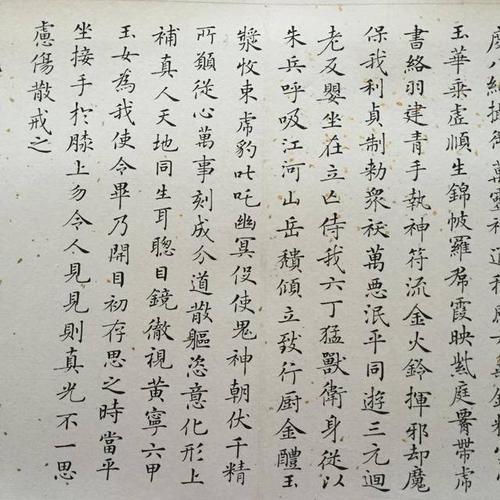 玉華乘虛順生錦帔羅帬霞映紫庭腰帶虎
書絡羽建青手執神符流金火鈴揮邪却魔
保我利貞制勑衆祅萬惡泯平同遊三元迴
老反嬰坐在立亾侍我六丁猛獸衛身從以
朱兵呼吸江河山岳穨傾立致行厨金醴玉
漿收束虎豹叱吒幽冥役使鬼神朝伏千精
所願從心萬事刻成分道散軀恣意化形上
補真人天地同生耳聰目鏡徹視黃寧六甲
玉女為我使令畢乃開目初存思之時當平
坐接手於膝上勿令人見見則真光不一思
慮傷散戒之